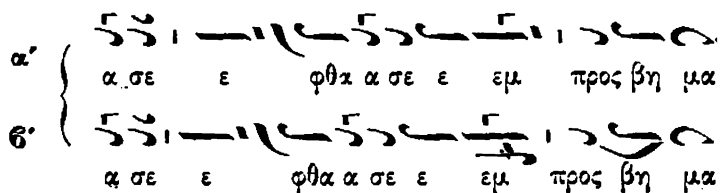 α΄
α σε ε φθα α σε ε εμ προς βη μα
ϐ΄
α σε ε φθα α σε ε εμ προς βη μα